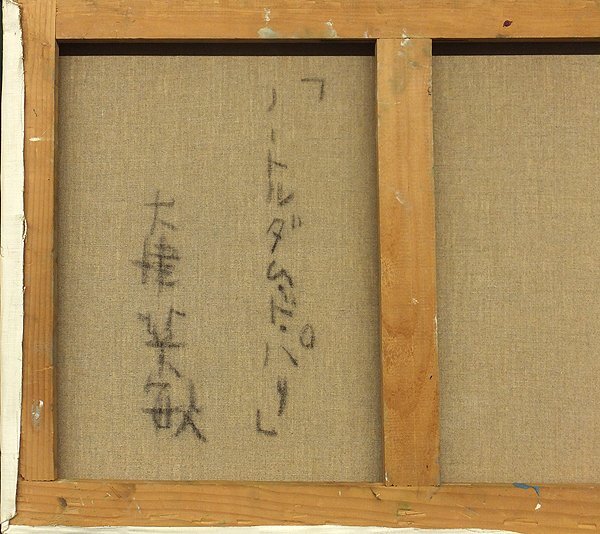 「ノートルダム・ド・パリ」
大津英敏